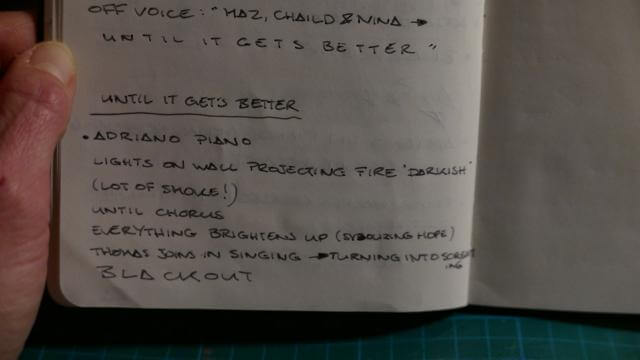 OFF VOICE: "MAZ, CHAILD & NINA →
UNTIL IT GETS BETTER"
UNTIL IT GETS BETTER
• ADRIANO PIANO
LIGHTS ON WALL PROJECTING FIRE "DARKISH"
(LOT OF SMOKE!)
UNTIL CHORUS
EVERYTHING BRIGHTENS UP (SYBOLIZING HOPE)
THOMAS JOINS IN SINGING → TURNING INTO SCREAM
ING
BLACKOUT